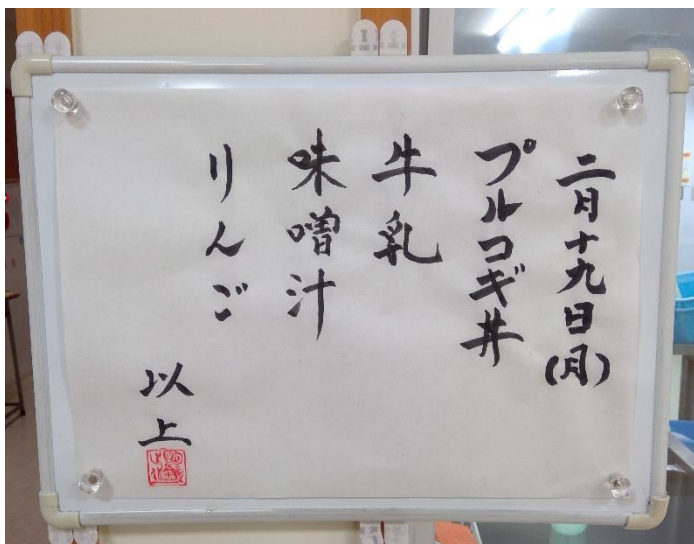 二月十九日(月)
プルコギ丼
牛乳
味噌汁
りんご
以上